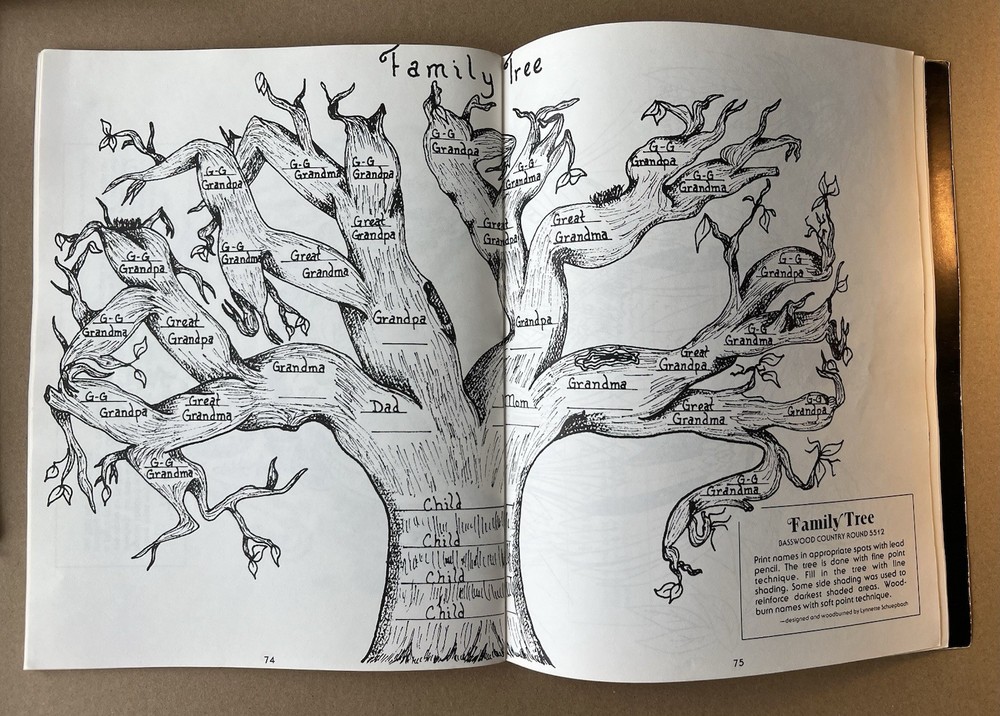 Family Tree
G-G
Grandpa
G-G
Grandma
G-G
Grandpa
G-G
Grandpa
G-G
Grandma
G-G
Grandpa
G-G
Grandma
Great
Grandpa
Great
Grandpa
Great
Grandma
G-G
Grandma
Great
Grandma
G-G
Grandpa
G-G
Grandpa
G-G
Grandma
Great
Grandpa
Grandpa
Grandpa
G-G
Grandma
Great
Grandpa
Grandma
Grandma
G-G
Grandpa
Great
Grandma
Dad
Mom
Great
Grandma
G-G
Grandpa
G-G
Grandma
G-G
Grandma
Child
Child
Child
Child
Family Tree
BASSWOOD COUNTRY ROUND 5512
Print names in appropriate spots with lead
pencil. The tree is done with fine point
technique. Fill in the tree with line
shading. Some side shading was used to
reinforce darkest shaded areas. Wood-
burn names with soft point technique.
—designed and woodburned by Lynnette Schuepbach
74
75